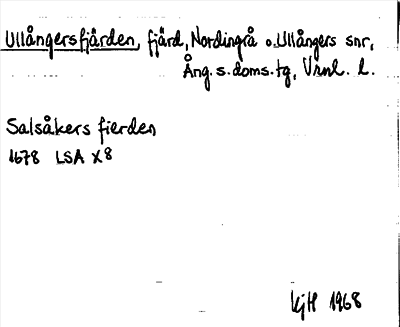 Ullångersfjärden, fjärd, Nordingrå o. Ullångers snr,
Ång. s. doms. tg, Vrnl. l.
Salsåkers fierden
1678 LSA X8
KjH 1968